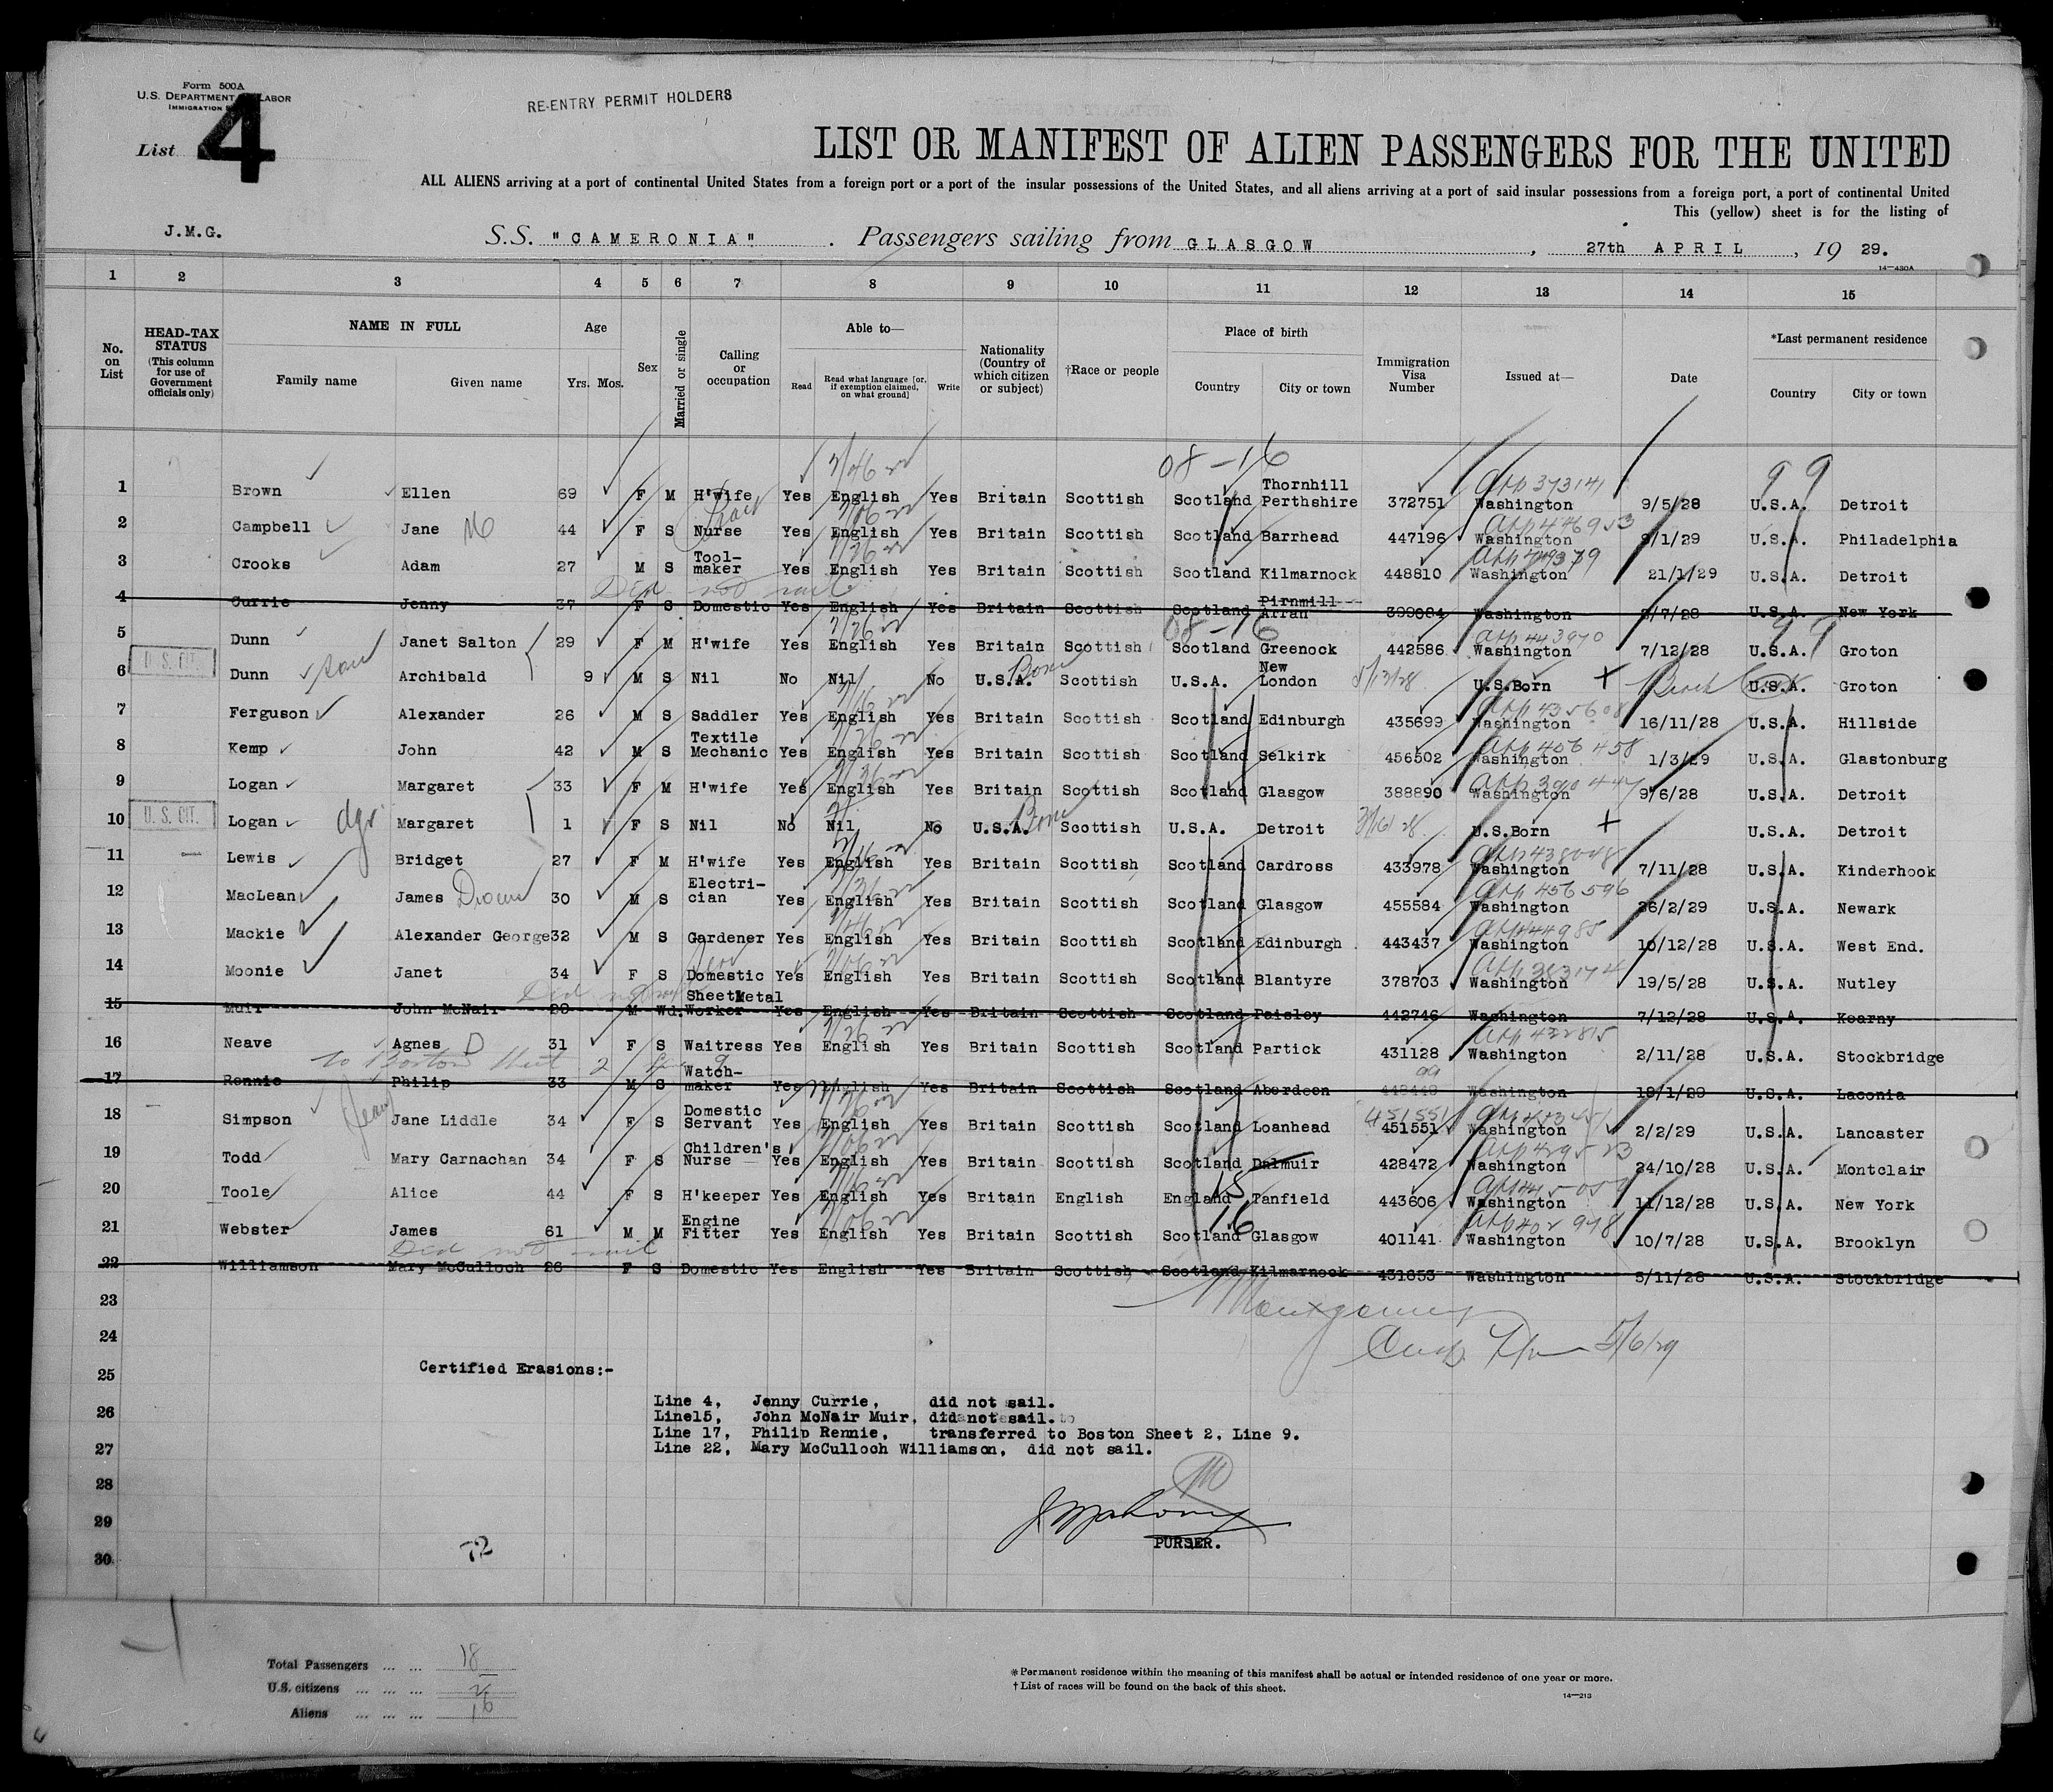 Form 500A
U.S. DEPARTMENT LABOR
IMMIGRATION
RE-ENTRY PERMIT HOLDERS
List 4
LIST OR MANIFEST OF ALIEN PASSENGERS FOR THE UNITED
ALL ALIENS arriving at a port of continental United States from a foreign port or a port of the insular possessions of the United States, and all aliens arriving at a port of said insular possessions from a foreign port, a port of continental United
This (yellow) sheet is for the listing of
J.M.G.
S.S. "CAMERONIA" . Passengers sailing from GLASGOW , 27th APRIL , 19 29.
14—430A
1 2 3 4 5 6 7 8 9 10 11 12 13 14 15
No. on List
HEAD-TAX STATUS (This column for use of Government officials only)
NAME IN FULL
Family name Given name
Age
Yrs. Mos.
Sex
Married or single
Calling or occupation
Able to—
Read Read what language [or, if exemption claimed, on what ground] Write
Nationality (Country of which citizen or subject)
†Race or people
Place of birth
Country City or town
Immigration Visa Number
Issued at—
Date
*Last permanent residence
Country City or town
08-16 99
1 Brown Ellen 69 F M H'wife Yes English Yes Britain Scottish Scotland Thornhill Perthshire 372751 Washington 9/5/28 U.S.A. Detroit
2 Campbell Jane M 44 F S Nurse Yes English Yes Britain Scottish Scotland Barrhead 447196 Washington /1/29 U.S.A. Philadelphia
3 Crooks Adam 27 M S Tool-maker Yes English Yes Britain Scottish Scotland Kilmarnock 448810 Washington 21/1/29 U.S.A. Detroit
Did not sail
4 Currie Jenny 37 F S Domestic Yes English Yes Britain Scottish Scotland Pirnmill Arran 399084 Washington /7/28 U.S.A. New York
08-16
5 Dunn Janet Salton 29 F M H'wife Yes English Yes Britain Scottish Scotland Greenock 442586 Washington 7/12/28 U.S.A. Groton
U.S. CIT.
6 Dunn son Archibald 9 M S Nil No Nil No U.S.A. Scottish U.S.A. New London U.S.Born + U.S.A. Groton
7 Ferguson Alexander 26 M S Saddler Yes English Yes Britain Scottish Scotland Edinburgh 435699 Washington 16/11/28 U.S.A. Hillside
8 Kemp John 42 M S Textile Mechanic Yes English Yes Britain Scottish Scotland Selkirk 456502 Washington 1/3/29 U.S.A. Glastonburg
9 Logan Margaret 33 F M H'wife Yes English Yes Britain Scottish Scotland Glasgow 388890 Washington 9/6/28 U.S.A. Detroit
U. S. CIT.
10 Logan dgr Margaret 1 F S Nil No Nil No U.S.A. Scottish U.S.A. Detroit U.S.Born + U.S.A. Detroit
11 Lewis Bridget 27 F M H'wife Yes English Yes Britain Scottish Scotland Cardross 433978 Washington 7/11/28 U.S.A. Kinderhook
12 MacLean James 30 M S Electri-cian Yes English Yes Britain Scottish Scotland Glasgow 455584 Washington 26/2/29 U.S.A. Newark
13 Mackie Alexander George 32 M S Gardener Yes English Yes Britain Scottish Scotland Edinburgh 443437 Washington 10/12/28 U.S.A. West End.
14 Moonie Janet 34 F S Domestic Yes English Yes Britain Scottish Scotland Blantyre 378703 Washington 19/5/28 U.S.A. Nutley
Did not sail
15 Muir John McNair M Wd. Sheet Metal Worker Yes English Yes Britain Scottish Scotland Paisley 442746 Washington 7/12/28 U.S.A. Kearny
16 Neave Agnes D 31 F S Waitress Yes English Yes Britain Scottish Scotland Partick 431128 Washington 2/11/28 U.S.A. Stockbridge
To Boston Sheet 2 line 9
17 Rennie Philip 33 M S Watch-maker Yes English Yes Britain Scottish Scotland Aberdeen Washington 18/1/29 U.S.A. Laconia
18 Simpson Jane Liddle 34 F S Domestic Servant Yes English Yes Britain Scottish Scotland Loanhead 451551 451551 Washington 2/2/29 U.S.A. Lancaster
19 Todd Mary Carnachan 34 F S Children's Nurse Yes English Yes Britain Scottish Scotland Dalmuir 428472 Washington 24/10/28 U.S.A. Montclair
20 Toole Alice 44 F S H'keeper Yes English Yes Britain English England 15 Tanfield 443606 Washington 11/12/28 U.S.A. New York
21 Webster James 61 M M Engine Fitter Yes English Yes Britain Scottish Scotland 16 Glasgow 401141 Washington 10/7/28 U.S.A. Brooklyn
Did not sail
22 Williamson Mary McCulloch 26 F S Domestic Yes English Yes Britain Scottish Scotland Kilmarnock 431853 Washington 5/11/28 U.S.A. Stockbridge
23 Montgomery
24 5/6/29
25 Certified Erasions:-
Line 4, Jenny Currie, did not sail.
26 Line15, John McNair Muir, did not sail.
Line 17, Philip Rennie, transferred to Boston Sheet 2, Line 9.
27 Line 22, Mary McCulloch Williamson, did not sail.
28
29
PURSER.
30 72
Total Passengers ... ... 18
U.S. citizens ... ... ... 2
Aliens ... ... ... 16
*Permanent residence within the meaning of this manifest shall be actual or intended residence of one year or more.
†List of races will be found on the back of this sheet.
14—213